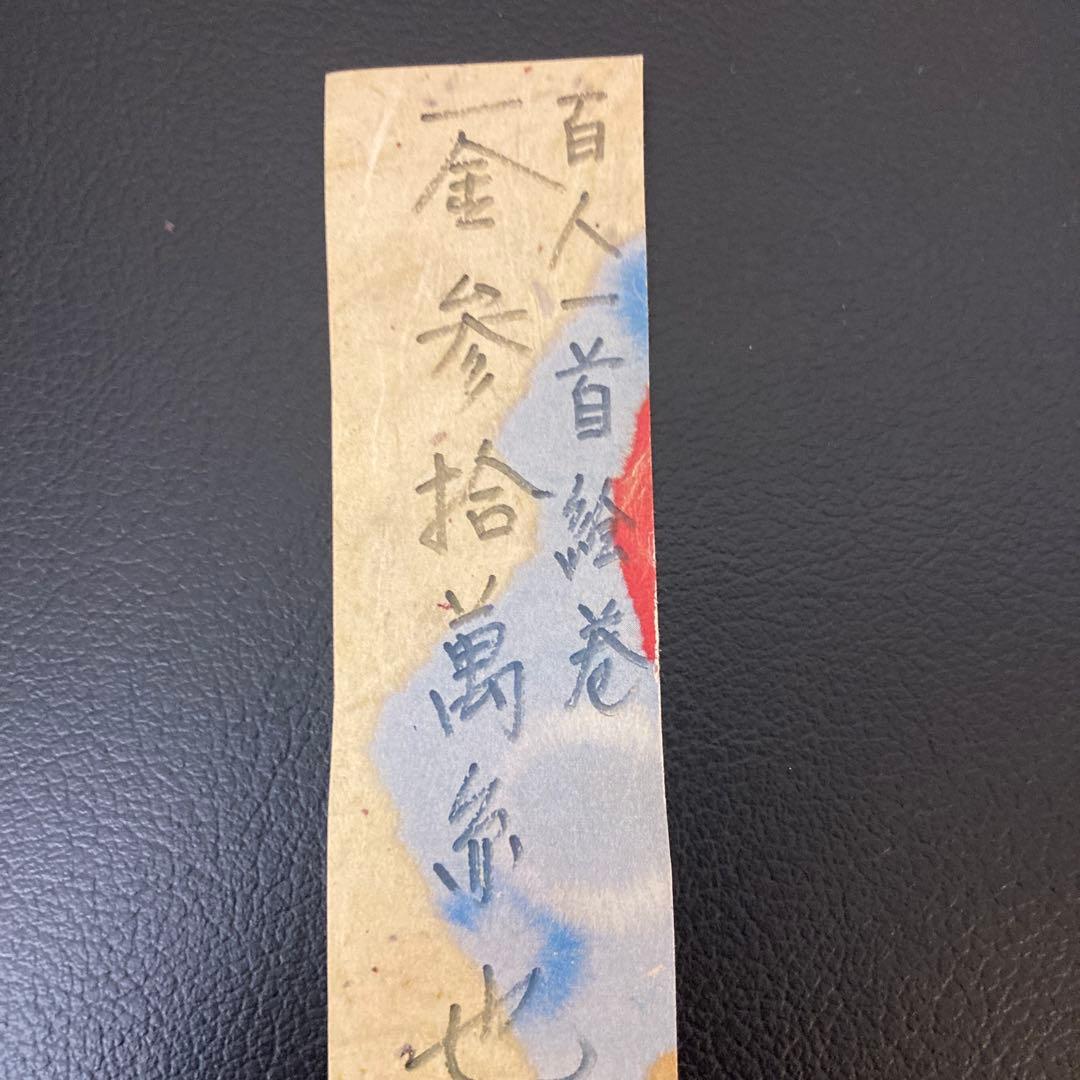 百人一首絵巻
一金参拾萬也